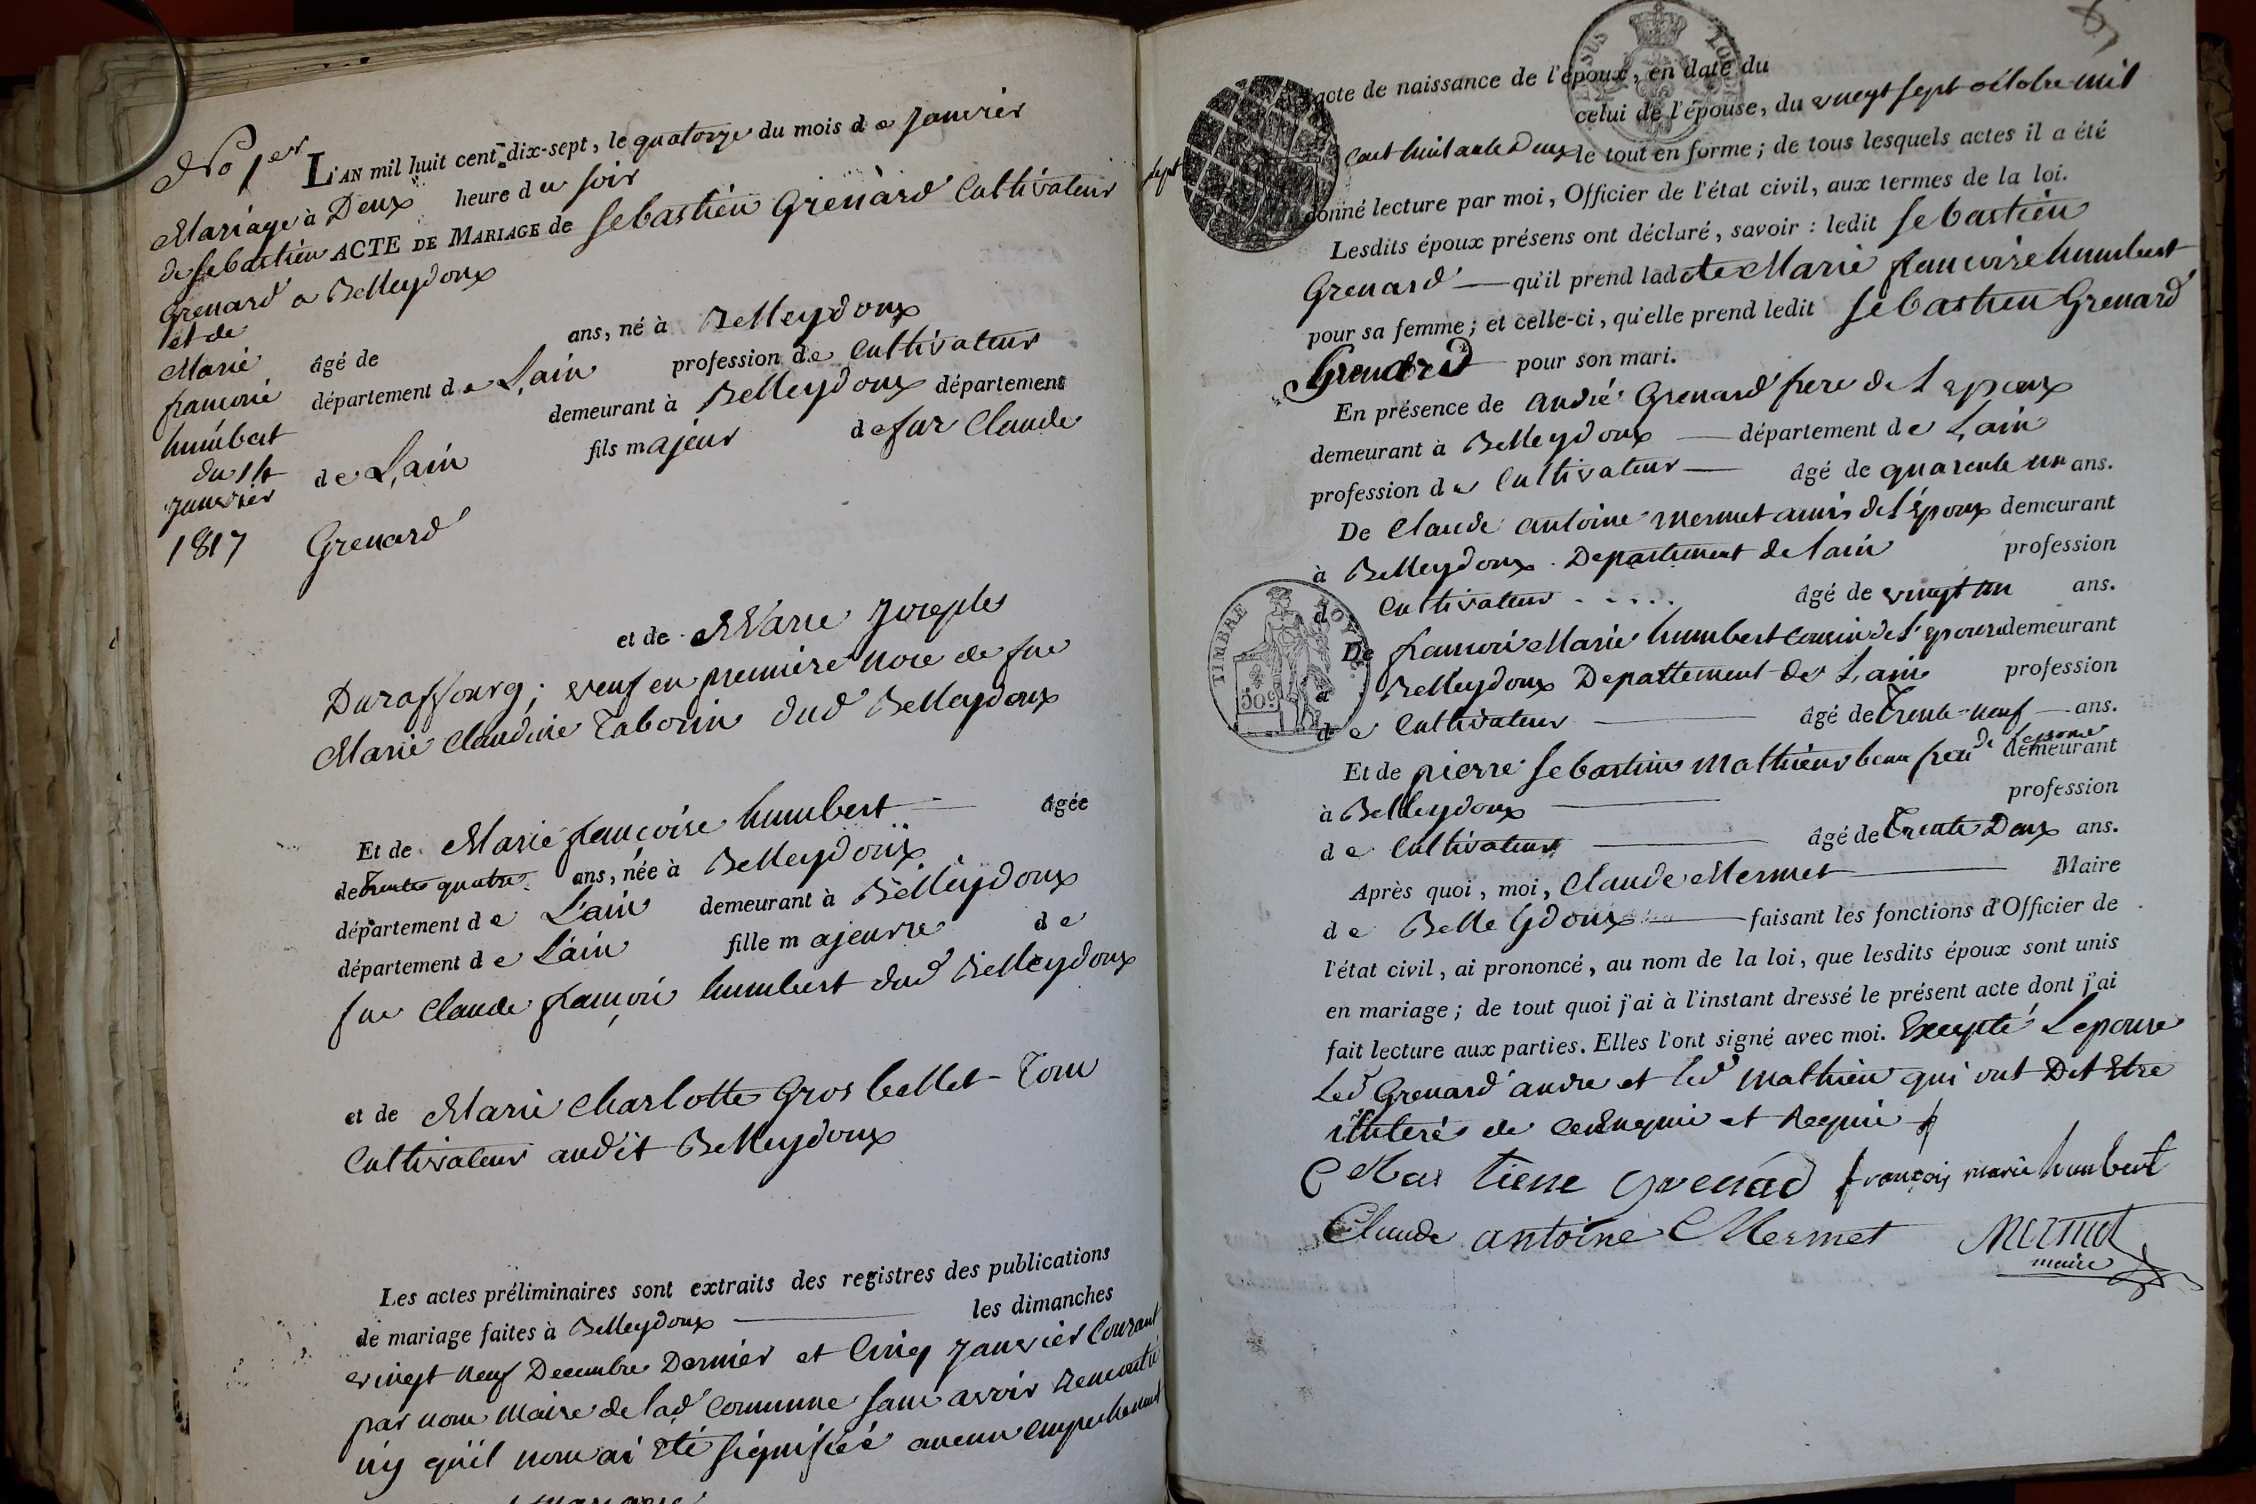 No 1er
Mariage
de sebastien
Grenard
et de
Marie
francoise
humbert
du 14
janvier
1817
L'AN mil huit cent dix-sept, le quatorze du mois de janvier
à Deux heure du soir
ACTE DE MARIAGE de sebastien Grenard Cultivateur
a Belleydoux
âgé de ans, né à Belleydoux
département de L'ain profession de Cultivateur
demeurant à Belleydoux département
de L'ain fils majeur de fur Claude
Grenard
et de Marie Josephe
Duraffourg; veuf en premiere noce de fue
Marie Claudine Tabourin dud Belleydoux
Et de Marie françoise humbert âgée
de Trente quatre ans, née à Belleydoux
département de L'ain demeurant à Belleydoux
département de L'ain fille majeure de
fue Claude françois humbert dud Belleydoux
et de Marie Charlotte Gros bellet Tous
Cultivateurs audit Belleydoux
Les actes préliminaires sont extraits des registres des publications
de mariage faites à Belleydoux les dimanches
vingt neuf Decembre Dernier et Cinq Janvier Courant
par nous Maire de lad Commune sans avoir rencontré
ny qu'il nous ai été signifiée aucun empechement
acte de naissance de l'époux, en date du
celui de l'épouse, du vingt sept octobre mil
sept cent huitante Deux le tout en forme; de tous lesquels actes il a été
donné lecture par moi, Officier de l'état civil, aux termes de la loi.
Lesdits époux présens ont déclaré, savoir: ledit sebastien
Grenard qu'il prend ladite Marie francoise humbert
pour sa femme; et celle-ci, qu'elle prend ledit sebastien Grenard
Grenard pour son mari.
En présence de andré Grenard frere de l'epoux
demeurant à Belleydoux département de L'ain
profession de Cultivateur âgé de quarante un ans.
De Claude antoine mermet amis de l'Epoux demeurant
à Belleydoux Departement de lain profession
d Cultivateur âgé de vingt un ans.
De francois Marie humbert cousin de l'epouse demeurant
à Belleydoux Departtement de L'ain profession
de Cultivateur âgé de Trente-neuf ans.
Et de pierre sebastien Mathieu beau frere de lepouse demeurant
à Belleydoux profession
de Cultivateur âgé de Trente Deux ans.
Après quoi, moi, Claude Mermet Maire
de Belleydoux faisant les fonctions d'Officier de
l'état civil, ai prononcé, au nom de la loi, que lesdits époux sont unis
en mariage; de tout quoi j'ai à l'instant dressé le présent acte dont j'ai
fait lecture aux parties. Elles l'ont signé avec moi. Excepté Lepouse
Led Grenard andre et led Mathieu qui ont Dit Etre
illiteré de ce enquis et Requis
tiene Grenad françois marie humbert
Claude antoine Mermet Mermet
maire
TIMBRE ROYAL
50c